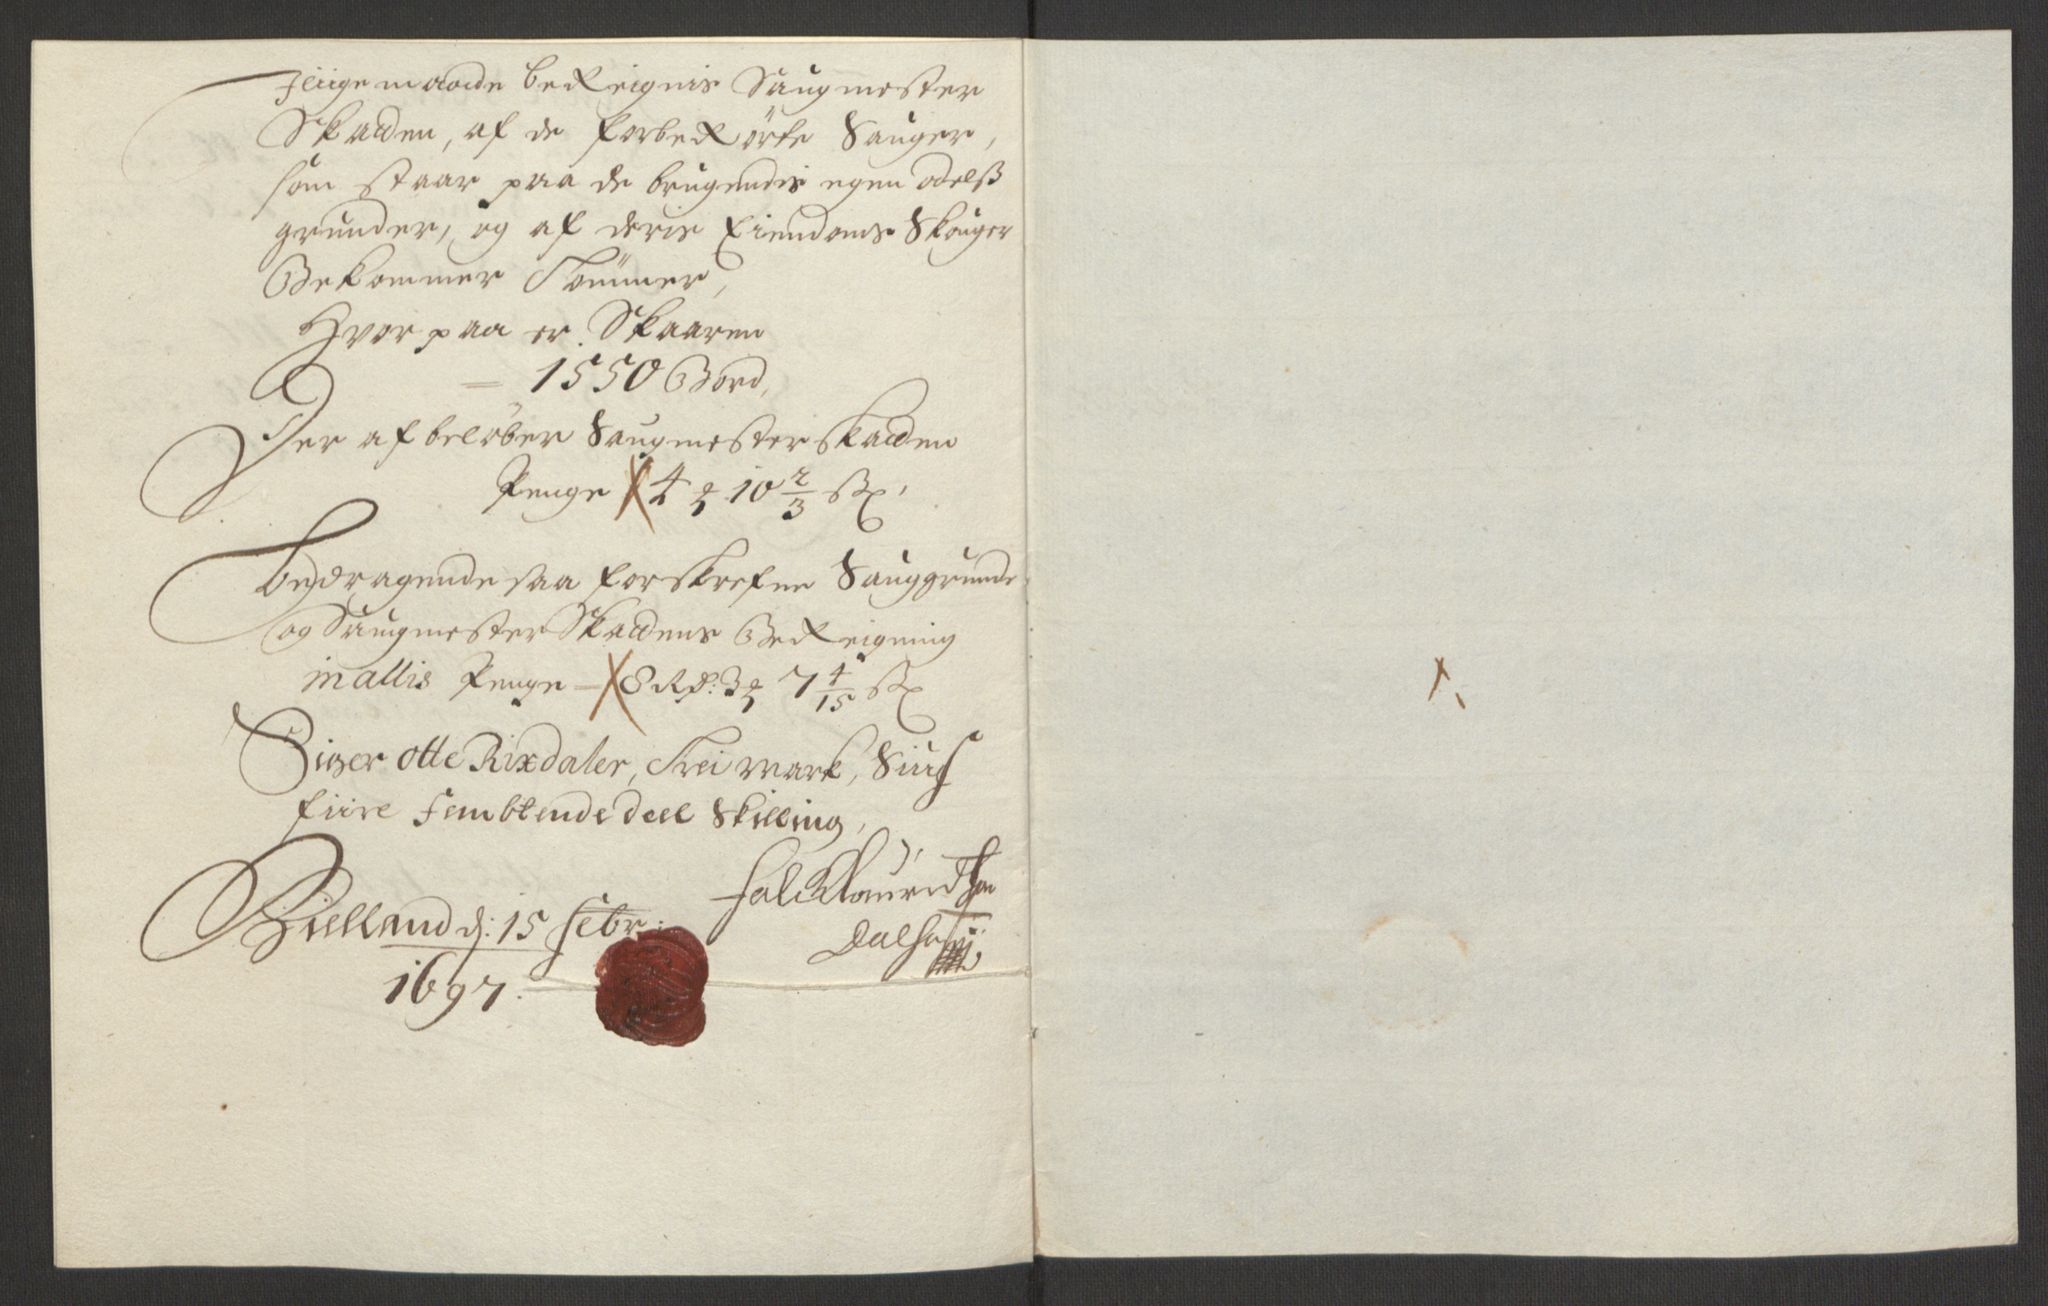 Jliige maade bereignis Saugmester
Skatten, af de forberörte Sauger,
som staar paa de brugendis egen odelß
grunder, og af deris Eiendoms Skouger
Bekommer Tömmer,
Hvor paa er Skaaren
— 1550 Bord,
Der af beløber Saugmester skatten
Penge 4 ƺ 10 2/3 ß,
bedragende saa forskrefne Sauggrunde
og Saugmester Skattens Bereigning
in allis Penge – 8 Rd: 3 ƺ 7 4/15 ß
Siger otte Rixdaler, Trei mark, Siuf
fiire fembtende deel Skilling,
Bielland d: 15 febr:
1697.
Falck Lauridtzen